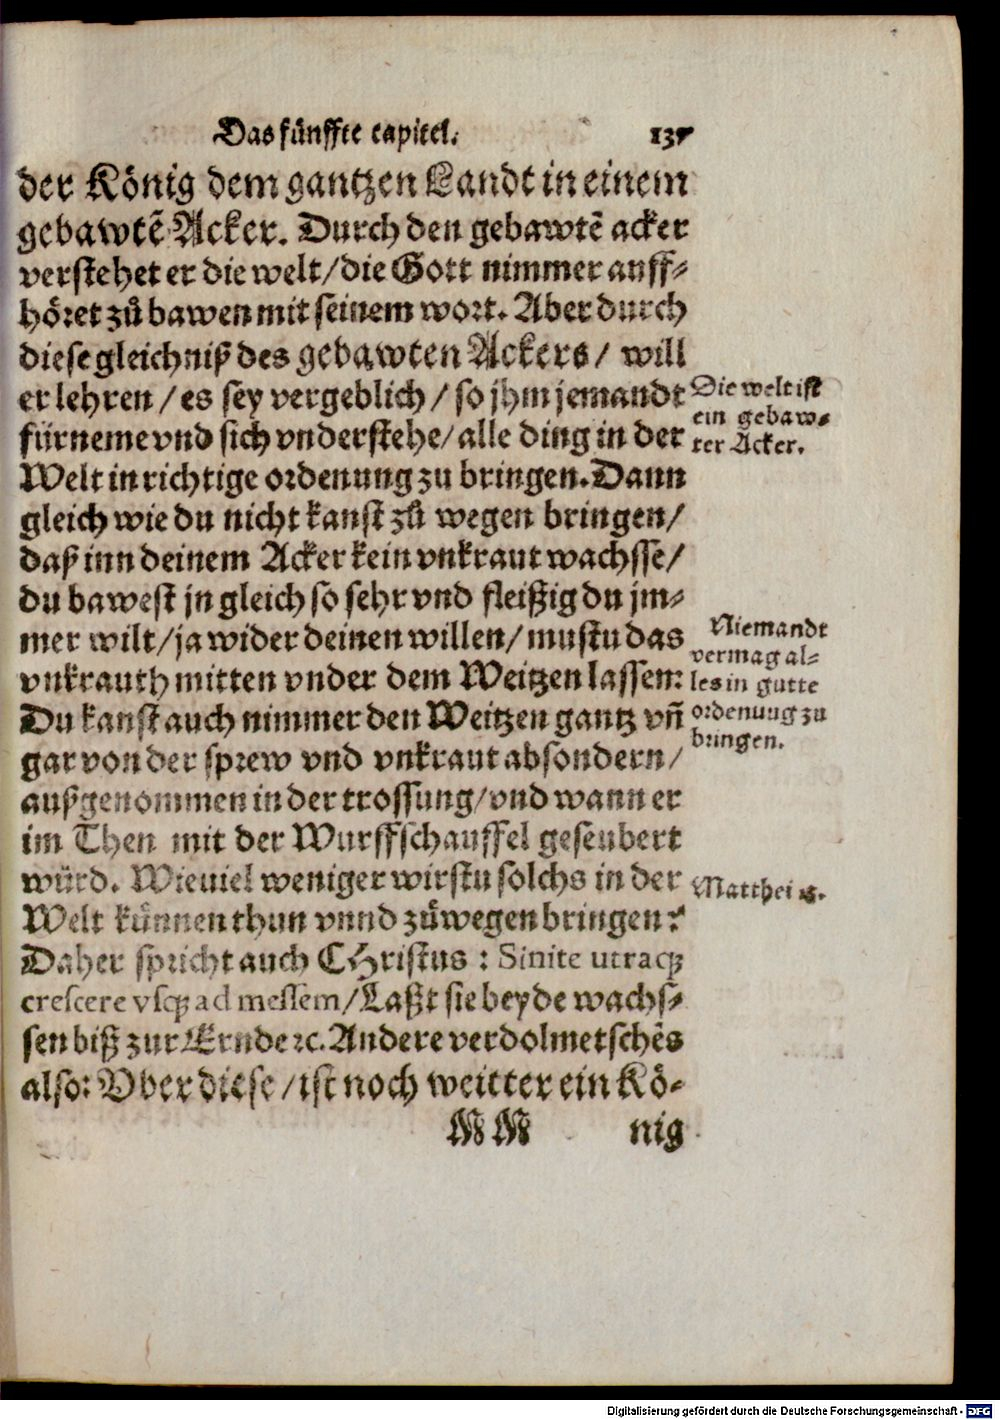 Das fünffte capitel. 137
der König dem gantzen Landt in einem
gebawtẽ Acker. Durch den gebawtẽ acker
verstehet er die welt/die Gott nimmer auff-
höret zů bawen mit seinem wort. Aber durch
diese gleichniß des gebawten Ackers/ will
er lehren/es sey vergeblich/so jhm jemandt
fürneme vnd sich vnderstehe/alle ding in der
Welt in richtige ordenung zu bringen. Dann
gleich wie du nicht kanst zů wegen bringen/
daß inn deinem Acker kein vnkraut wachsse/
du bawest jn gleich so sehr vnd fleißig du jm-
mer wilt/ja wider deinen willen/mustu das
vnkrauth mitten vnder dem Weitzen lassen:
Du kanst auch nimmer den Weitzen gantz vñ
gar von der sprew vnd vnkraut absondern/
außgenommen in der trossung/vnd wann er
im Then mit der Wurffschauffel geseubert
würd. Wieuiel weniger wirstu solchs in der
Welt künnen thun vnnd zůwegen bringen?
Daher spricht auch CHristus: Sinite utraqꝫ
crescere vsqꝫ ad messem/Laßt sie beyde wachs-
sen biß zur Ernde ꝛc. Andere verdolmetschẽs
also: Vber diese/ist noch weitter ein Kö-
M M nig
Die welt ist
ein gebaw-
ter Acker.
Niemandt
vermag al-
les in gutte
ordenung zu
bringen.
Matthei 13.
Digitalisierung gefördert durch die Deutsche Forschungsgemeinschaft - DFG